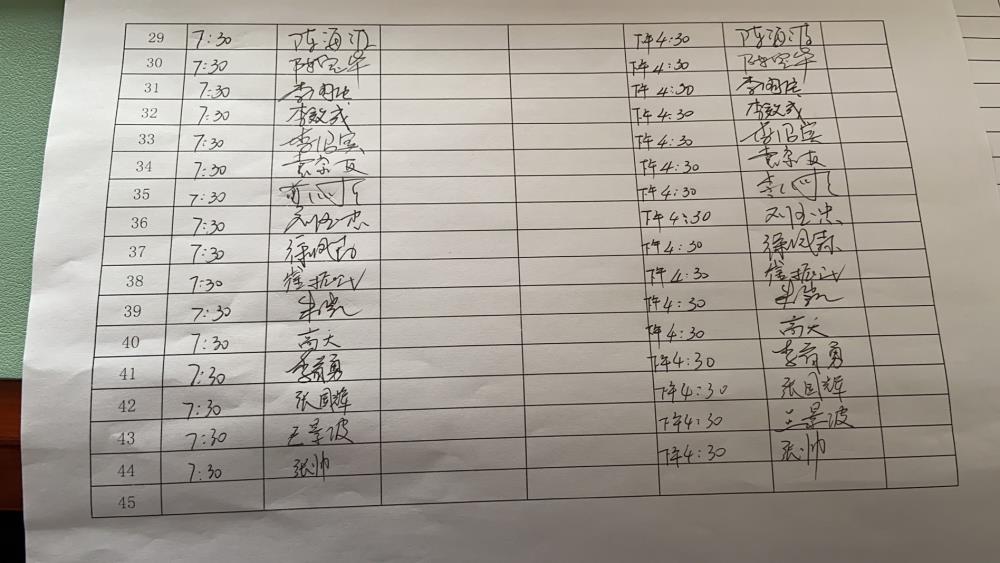 29 7:30 陈海江 下午4:30 陈海江
30 7:30 下午4:30
31 7:30 李国 下午4:30 李国
32 7:30 李敬成 下午4:30 李敬成
33 7:30 李沼宾 下午4:30 李沼宾
34 7:30 袁宗友 下午4:30 袁宗友
35 7:30 下午4:30
36 7:30 下午4:30
37 7:30 下午4:30
38 7:30 崔振 下午4:30 崔振
39 7:30 朱凯 下午4:30 朱凯
40 7:30 高天 下午4:30 高天
41 7:30 李育勇 下午4:30 李育勇
42 7:30 张国辉 下午4:30 张国辉
43 7:30 王景波 下午4:30 王景波
44 7:30 张帅 下午4:30 张帅
45